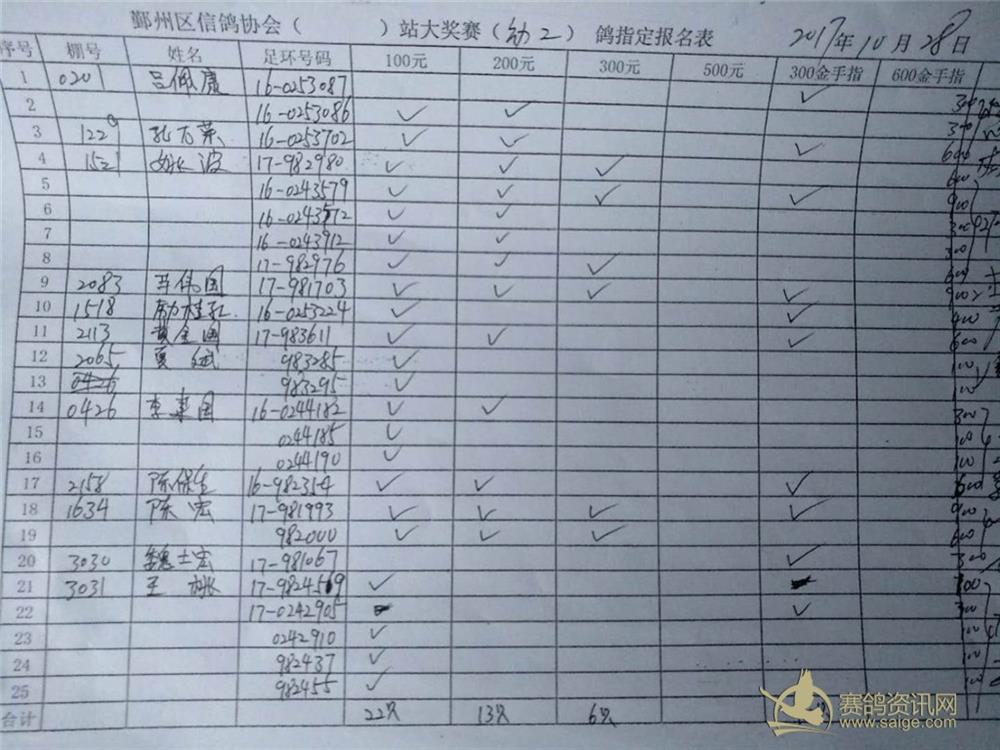 鄞州区信鸽协会（ ）站大奖赛（幼2） 鸽指定报名表 2017年10月28日
序号 棚号 姓名 足环号码 100元 200元 300元 500元 300金手指 600金手指
1 0201 吕佩康 16-0253087 ✓ 300
2 16-0253086 ✓ ✓ 300
3 1229 孔万荣 16-0253702 ✓ ✓ ✓ 600
4 1521 姚波 17-982980 ✓ ✓ ✓ 600
5 16-0243579 ✓ ✓ ✓ ✓ 900
6 16-0243572 ✓ ✓ 300
7 16-0243912 ✓ ✓ 300
8 17-982976 ✓ ✓ ✓ 600
9 2083 伟国 17-981703 ✓ ✓ ✓ ✓ 900
10 1518 桂 16-0253224 ✓ ✓ 400
11 2113 黄金国 17-983611 ✓ ✓ ✓ 600
12 2065 夏斌 983285 ✓ 100
13 0426 983295 ✓ 100
14 0426 李来国 16-0244182 ✓ ✓ 300
15 0244185 ✓ 100
16 0244190 ✓ 100
17 2158 陈保生 16-982314 ✓ ✓ ✓ 600
18 1634 陈宏 17-981993 ✓ ✓ ✓ ✓ 900
19 982000 ✓ ✓ ✓ 600
20 3030 魏士宏 17-981067 ✓ 300
21 3031 王 17-982459 ✓ 100
22 17-0242905 ✓ 300
23 0242910 ✓ 100
24 982437 ✓ 100
25 982455 ✓ 100
合计 22只 13只 6只
赛鸽资讯网
www.saige.com